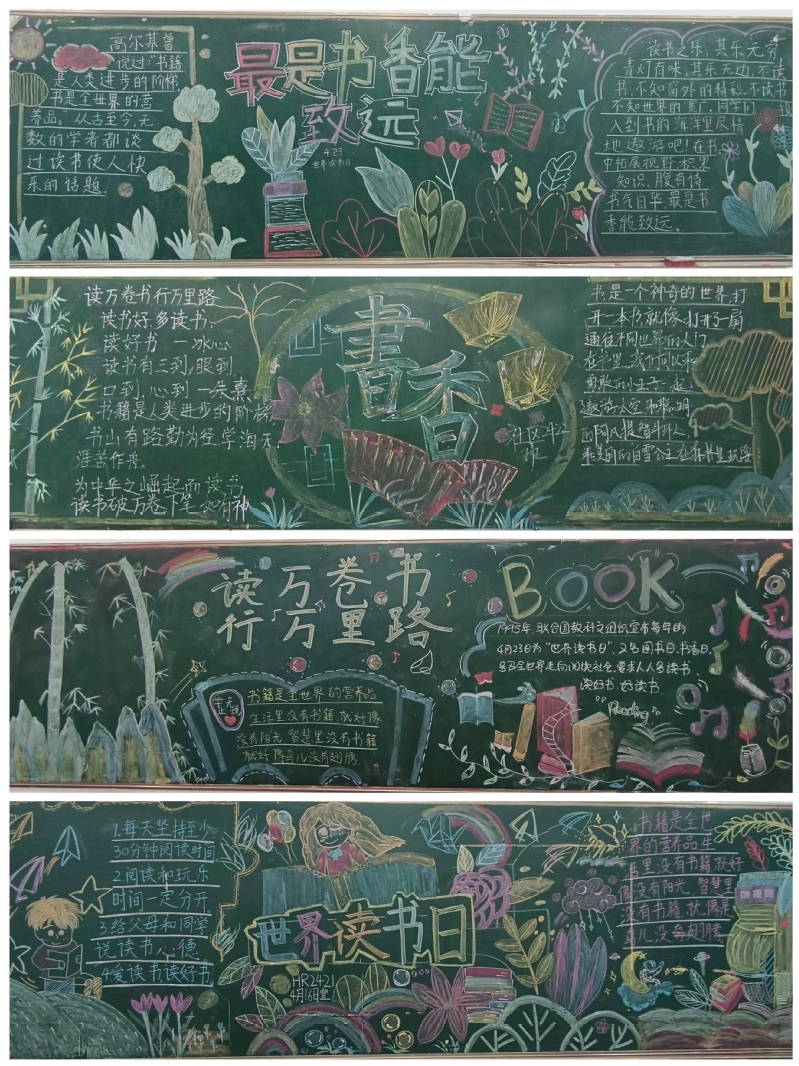 高尔基曾
说过"书籍
是人类进步的阶梯,
书是全世界的营
养品。从古至今,无
数的学者都谈
过读书使人快
乐的话题。
最是书香能
致远
4.23
世界读书日
"读书之乐,其乐无穷
青灯有味,其乐无边,不读
书,不知窗外的精彩,不读书
不知世界的宽广,同学们
入到书的海洋里尽情
地遨游吧!在书
中拓展视野,积累
知识,腹有诗
书气自华,最是书
香能致远。
读万卷书行万里路
读书好,多读书,
读好书 一冰心
读书有三到,眼到
口到,心到 一朱熹
书籍是人类进步的阶梯
书山有路勤为径,学海无
涯苦作舟。
为中华之崛起而读书
读书破万卷,下笔如有神
書香
社区
班
书,是一个神奇的世界,打
开一本书,就像打开了一扇
通往不同世界的大门
在书里,我们可以和
勇敢的王子一起
遨游太空,和聪明
的阿凡提智斗坏人,
和美丽的白雪公主在森林里玩耍
读万卷书
行万里路
学无
止境
书籍是全世界的营养品
生活里没有书籍,就好像
没有阳光,智慧里没有书籍
就好像鸟儿没有翅膀
BOOK
1995年,联合国教科文组织宣布每年的
4月23日为"世界读书日",又名图书日,书香日。
号召全世界走向阅读社会,要求人人多读书
读好书,好读书。
Reading
1.每天坚持至少
30分钟阅读时间
2.阅读和玩乐
时间一定分开
3.给父母和同学
说读书心德
4爱读书读好书
世界读书日
HR2421
4月16日宣
书籍是全世
界的营养品,生
里没有书籍就好
像没有阳光,智慧里
没有书籍,就像是
鸟儿没有翅膀